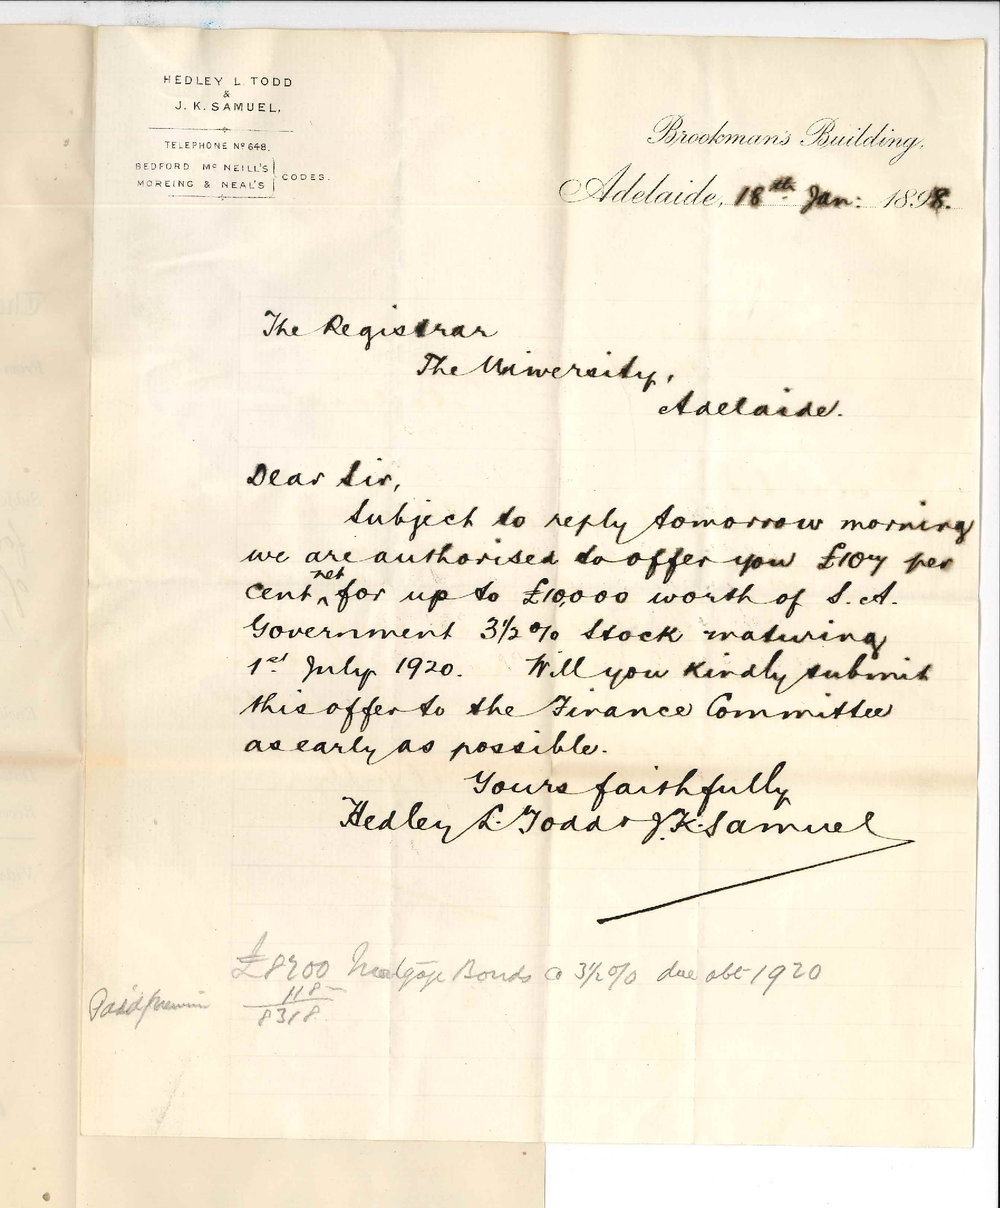 HEDLEY L. TODD
&
J. K. SAMUEL,
TELEPHONE Nº 648.
BEDFORD Mc NEILL'S
MOREING & NEAL'S
CODES.
Brookman's Building.
Adelaide, 18th Jan: 1898.
The Registrar
The University,
Adelaide.
Dear Sir,
Subject to reply tomorrow morning
we are authorised to offer you £107 per
cent net for up to £10,000 worth of S. A.
Government 3½% Stock maturing
1st July 1920. Will you kindly submit
this offer to the Finance Committee
as early as possible.
Yours faithfully
Hedley L. Todd & J. K. Samuel
£8200 Mortgage Bonds @ 3½% due 1920
118
Paid premium
8318